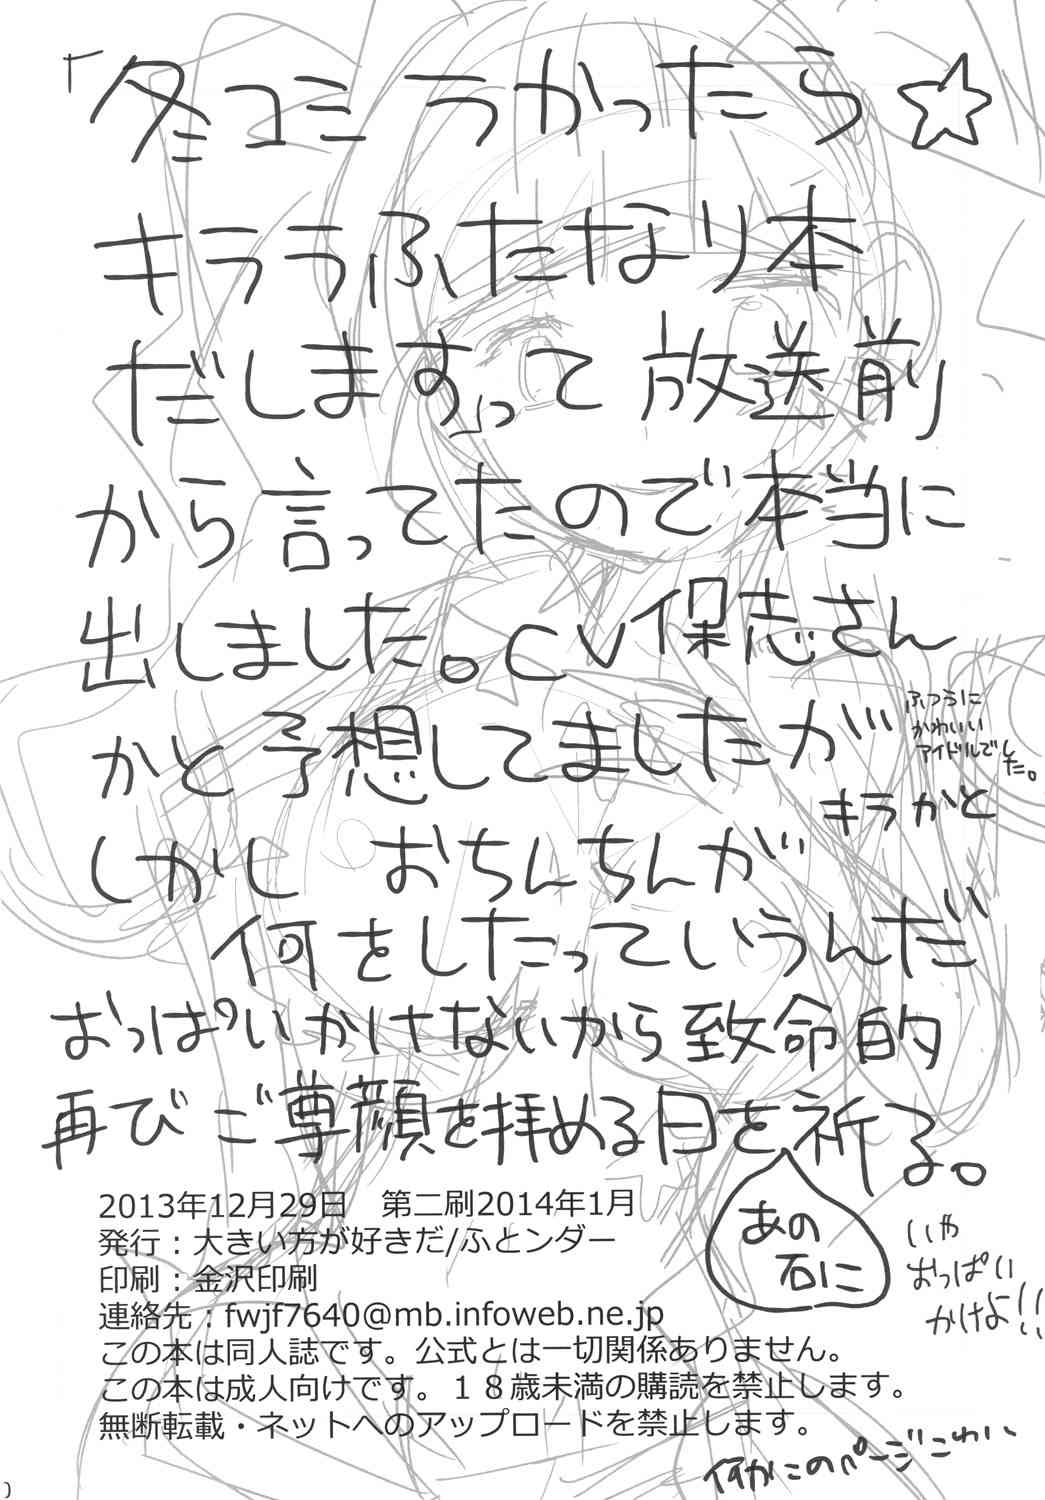 「冬コミうかったら☆
キララふたなり本
だします」って放送前
から言ってたので本当に
出しました。CV保志さん
かと予想してましたが
ふつうに
かわいい
アイドルでした。
キラかと
しかし おちんちんが
何をしたっていうんだ
おっぱいかけないから致命的
再びご尊顔を拝める日を祈る。
あの
石に
いや
おっぱい
かけよ!!
2013年12月29日　第二刷2014年1月
発行：大きい方が好きだ/ふとンダー
印刷：金沢印刷
連絡先：fwjf7640@mb.infoweb.ne.jp
この本は同人誌です。公式とは一切関係ありません。
この本は成人向けです。１８歳未満の購読を禁止します。
無断転載・ネットへのアップロードを禁止します。
何かこのページこわい